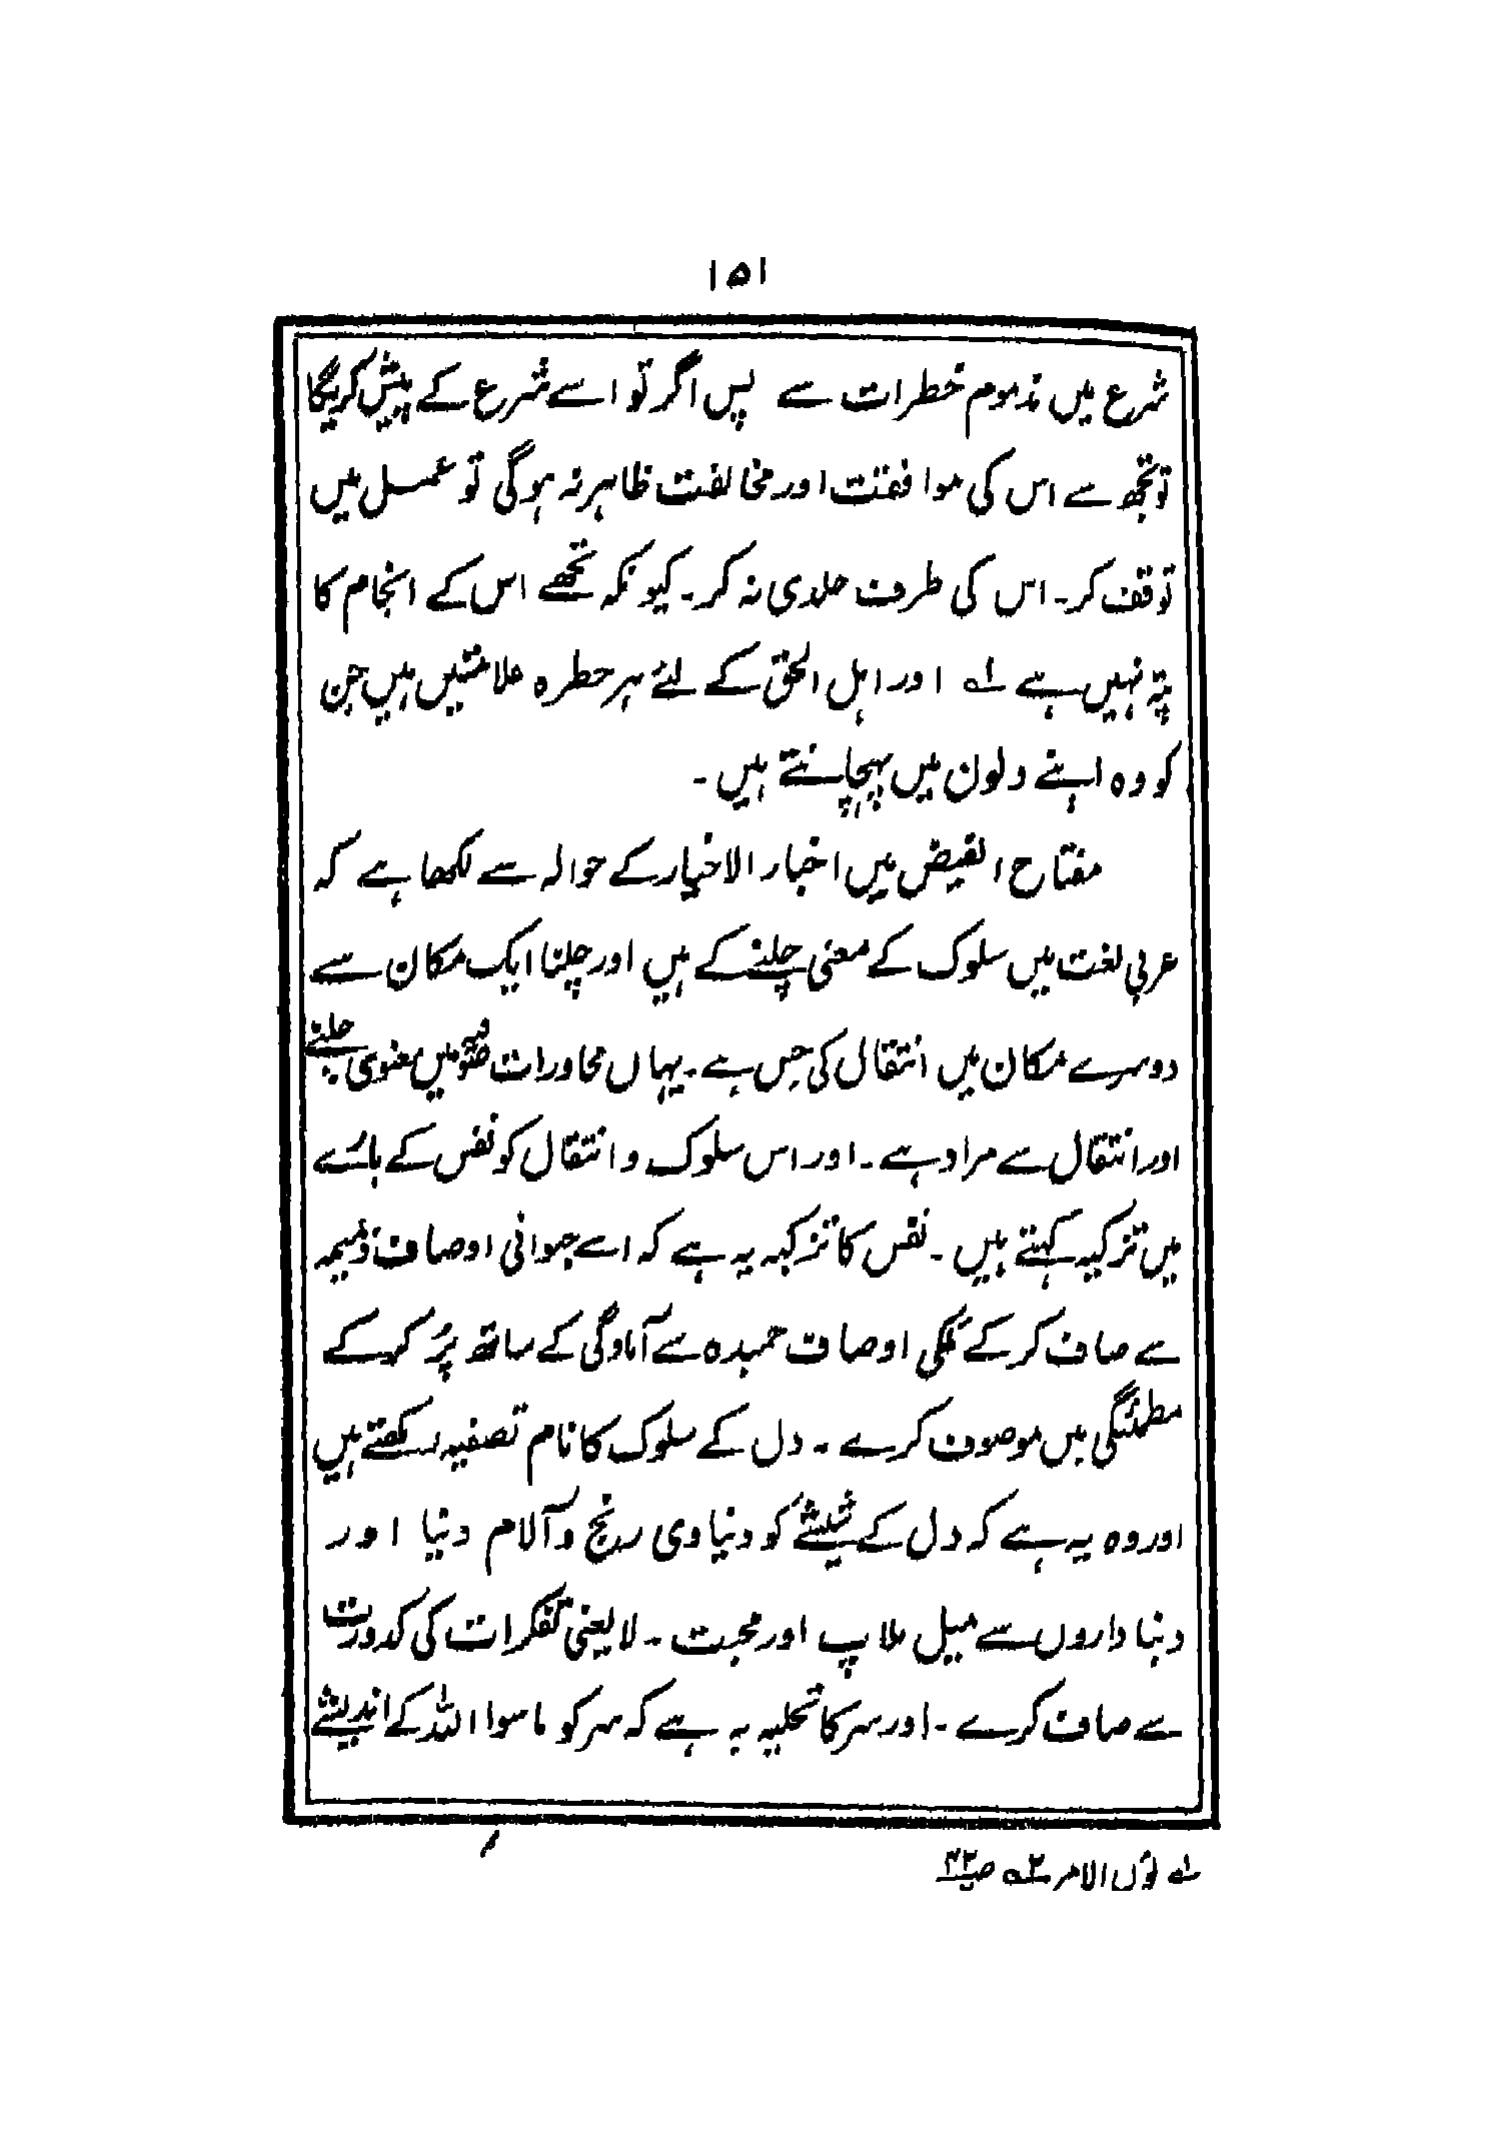 ۱۵۱
شرع میں مذموم خطرات سے پس اگر تو اسے شرع کے پیش کریگا
تو تجھ سے اس کی موافقت اور مخالفت ظاہر نہ ہوگی تو عمل میں
توقف کر۔ اس کی طرف جلدی نہ کر۔ کیونکہ تجھے اس کے انجام کا
پتہ نہیں ہے لہ اور اہل الحق کے لئے ہر خطرہ علامتیں ہیں جن
کو وہ اپنے دلوں میں پہچانتے ہیں۔
مفتاح الفیض میں اخبار الاخیار کے حوالہ سے لکھا ہے کہ
عربی لغت میں سلوک کے معنی چلنے کے ہیں اور چلنا ایک مکان سے
دوسرے مکان میں انتقال کی جس ہے۔ یہاں محاورات صوفیہ میں معنوی چلنے
اور انتقال سے مراد ہے۔ اور اس سلوک و انتقال کو نفس کے بارے
میں تزکیہ کہتے ہیں۔ نفس کا تزکیہ یہ ہے کہ اسے حیوانی اوصاف ذمیمہ
سے صاف کر کے ملکی اوصاف حمیدہ سے آمادگی کے ساتھ پُر کر کے
مطمئنگی میں موصوف کرے۔ دل کے سلوک کا نام تصفیہ رکھتے ہیں
اور وہ یہ ہے کہ دل کے شیشے کو دنیاوی رنج و آلام دنیا اور
دنیا داروں سے میل ملاپ اور محبت۔ لایعنی تفکرات کی کدورت
سے صاف کرے۔ اور سر کا تخلیہ یہ ہے کہ سر کو ماسوا اللہ کے اندیشے